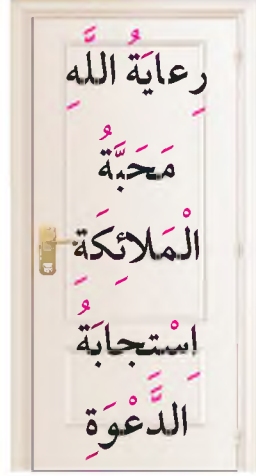 رِعايَةُ اللَّهِ
مَحَبَّةُ
الْمَلائِكَةِ
اِسْتِجابَةُ
الدَّعْوَةِ